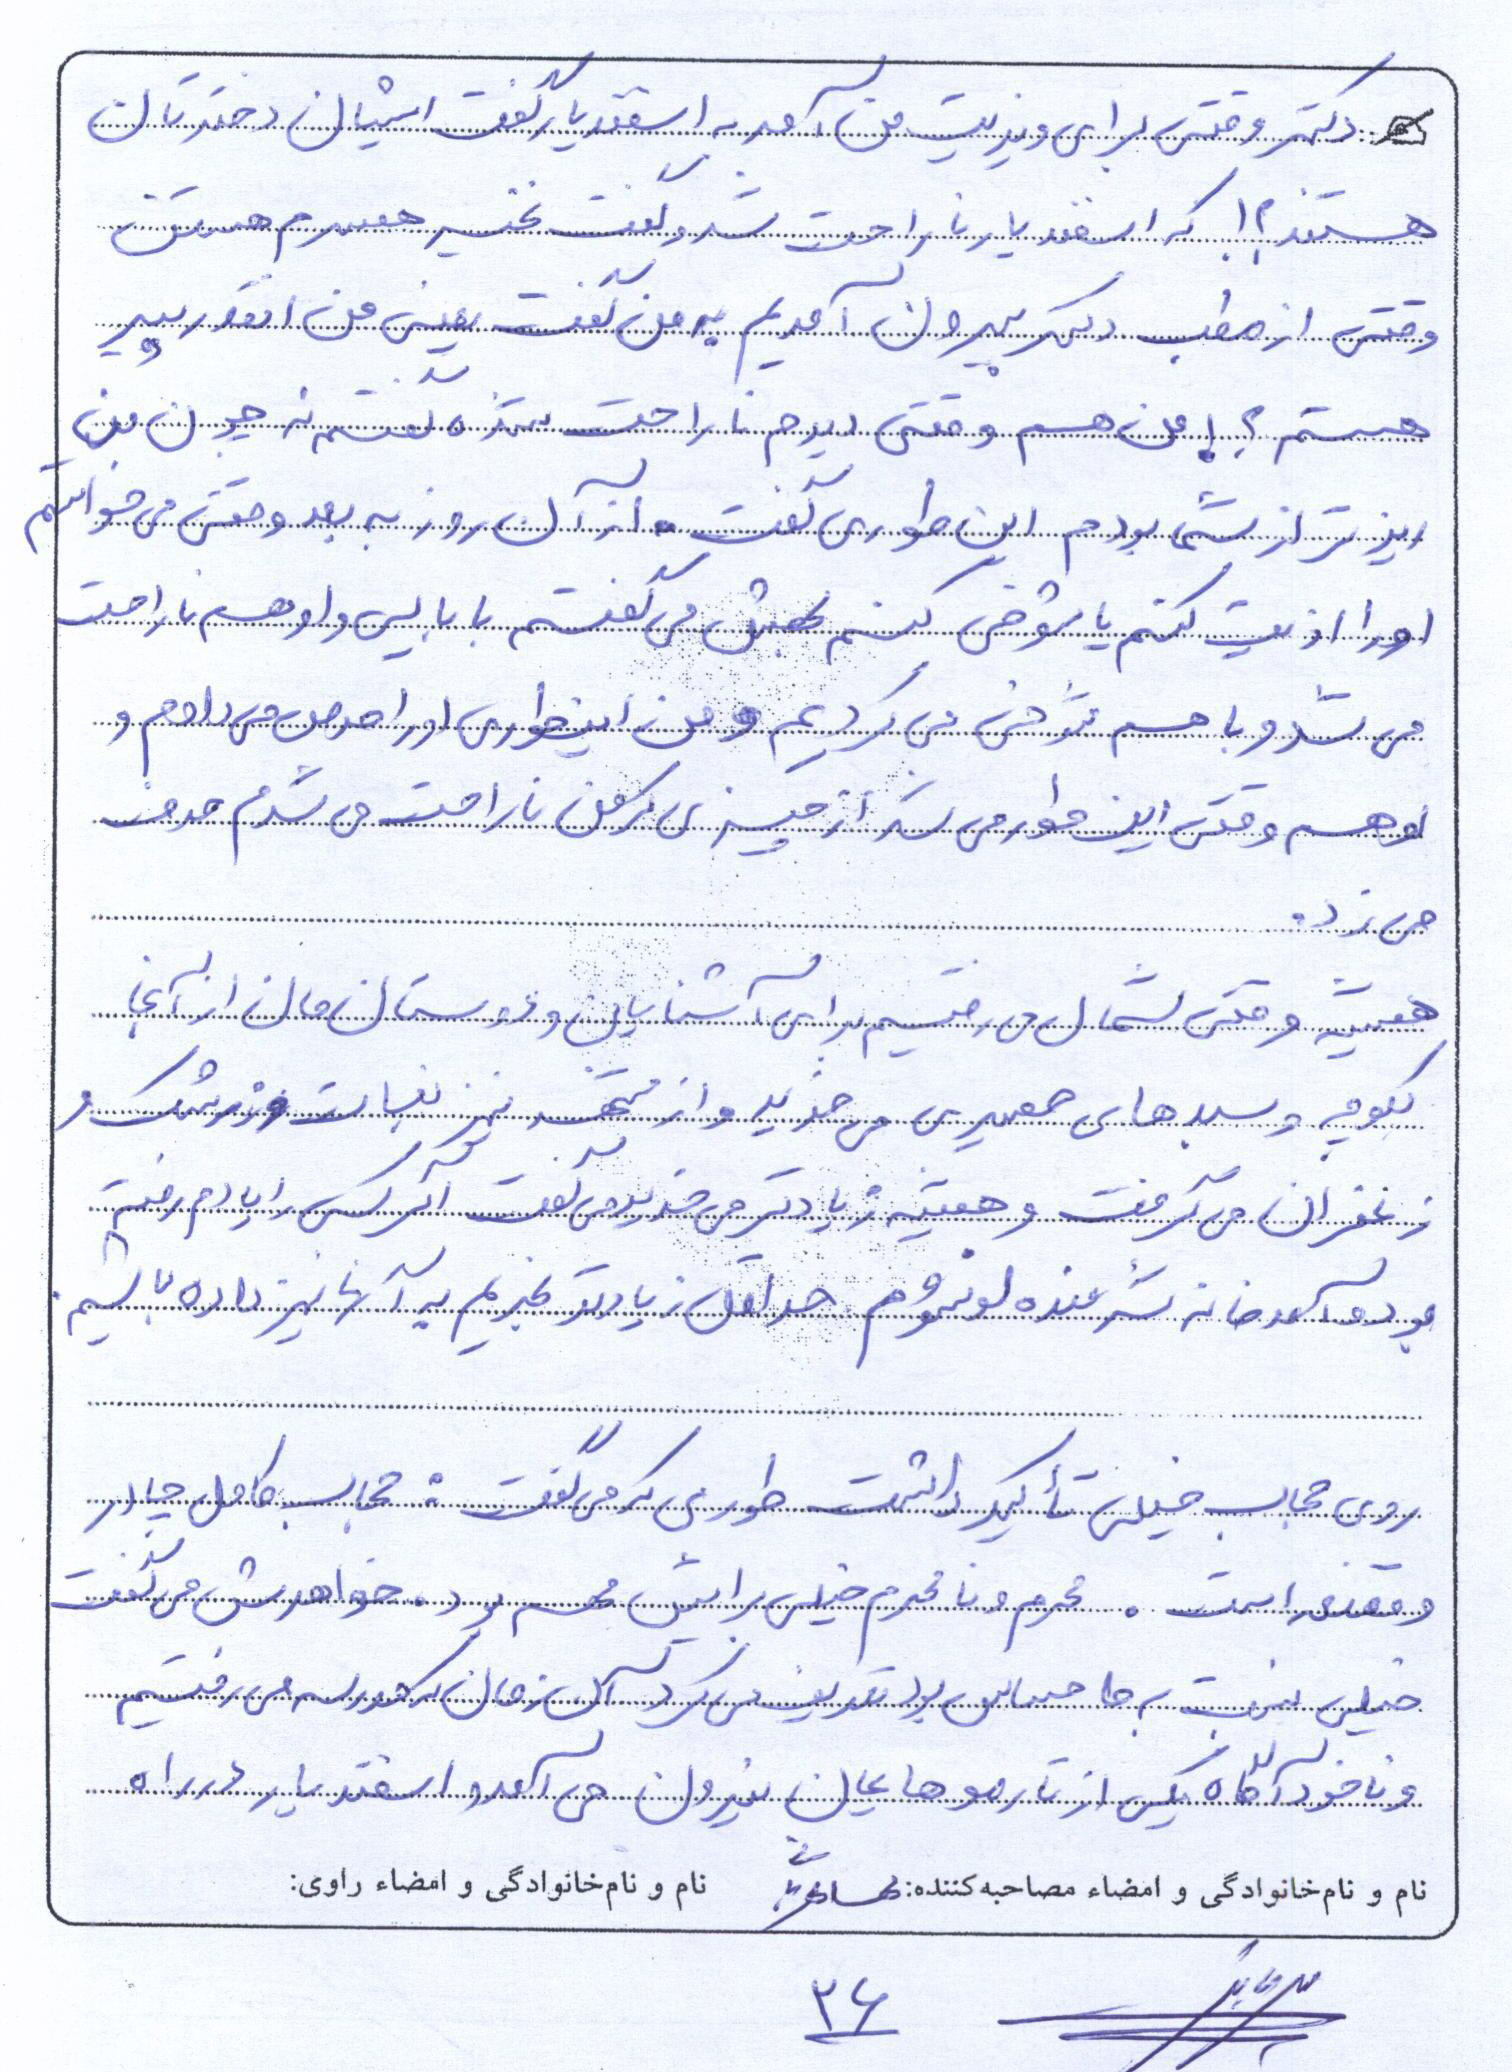 دکتر وقتی برای ویزیت من آمد به اسفندیار گفت ایشان دخترتان
هستند؟! که اسفندیار ناراحت شد و گفت نخیر همسرم هستن
وقتی از مطب دکتر بیرون آمدیم به من گفت یعنی من انقدر پیر
هستم؟! من هم وقتی دیدم ناراحت شده گفتم نه چون من
ریز تر از شما بودم این طوری گفت. از آن روز به بعد وقتی می خواستم
او را اذیت کنم یا شوخی کنم بهش می گفتم بابایی و او هم ناراحت
می شد و با هم شوخی می کردیم و من اینطوری او را حرص می دادم و
او هم وقتی این طور می شد از چیزی که من ناراحت می شدم حرف
می زد.
همیشه وقتی شمال می رفتیم برای آشنایان و دوستان مان از آنجا
کلوچه و سبدهای حصیری می خرید و از مشهد نیز نبات و زرشک و
زعفران می گرفت و همیشه زیادتر می خرید می گفت اگر کسی را یادم رفته
بود و آمد خانه شرمنده او نشوم حداقل زیادتر بخریم به آنها نیز داده باشیم.
روی حجاب خیلی تأکید داشت طوری که می گفت: حجاب کامل چادر
و مقنعه است. محرم و نامحرم خیلی برایش مهم بود. خواهرش می گفت
خیلی نسبت به ما حساس بود تعریف می کرد آن زمان که مدرسه می رفتیم
و ناخودآگاه یکی از تار موهایمان بیرون می آمد و اسفندیار در راه
نام و نام‌خانوادگی و امضاء مصاحبه‌کننده: نام و نام‌خانوادگی و امضاء راوی:
۲۶